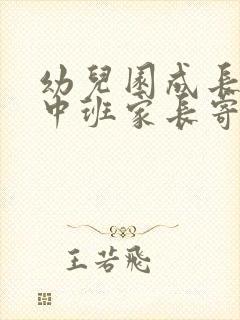 幼兒園成長
中班家長寄
王若飛